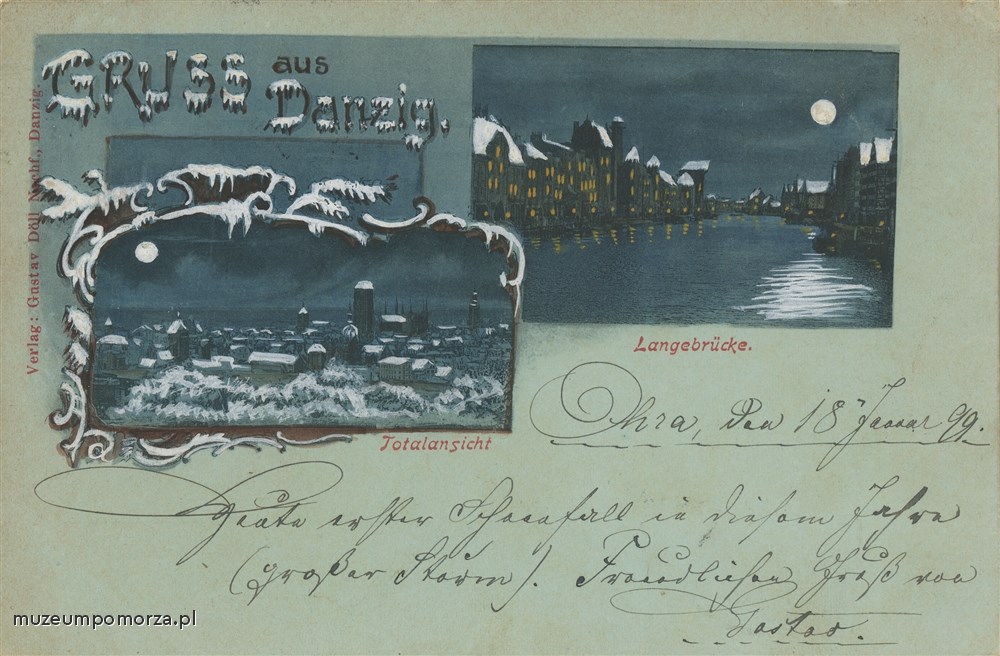 GRUSS aus
Danzig.
Verlag: Gustav Döll Nachf., Danzig.
Langebrücke.
Totalansicht
Ohra, den 18 Januar 99.
Heute erster Schneefall in diesem Jahre
(großer Sturm). Freundlichen Gruß von
Gustav.
muzeumpomorza.pl